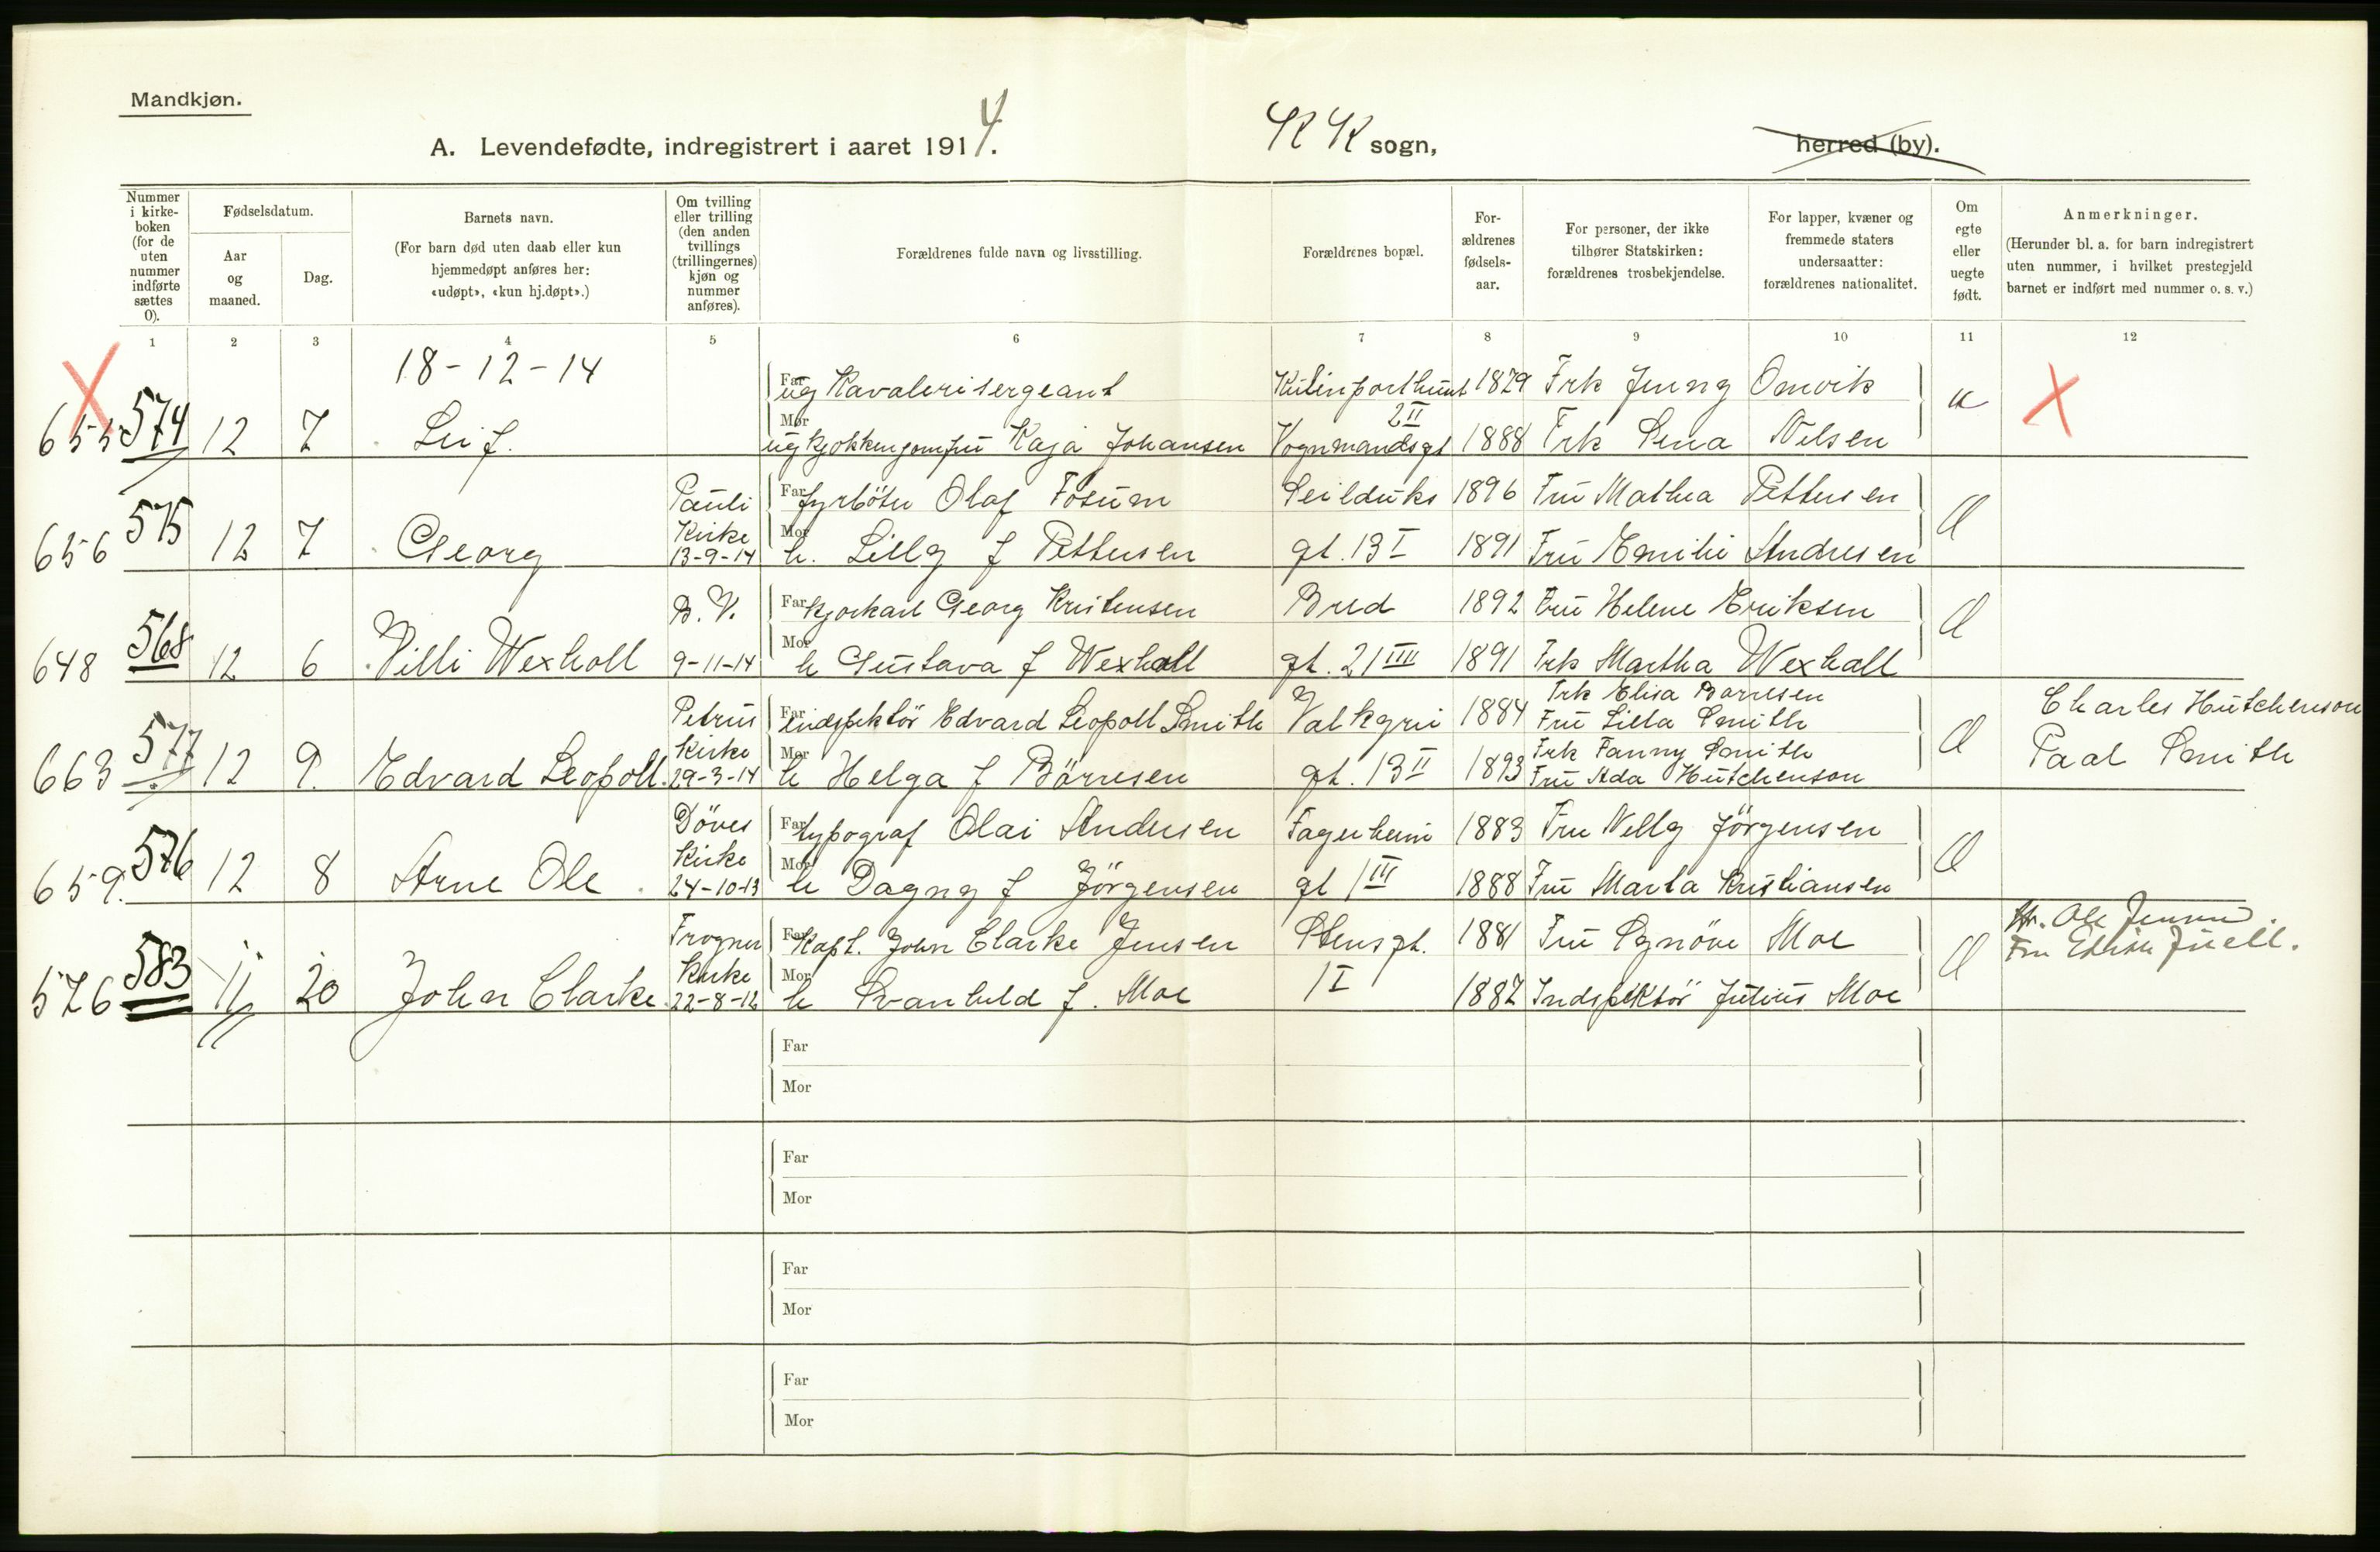 Mandkjøn.
A. Levendefødte, indregistrert i aaret 1914.
KK sogn,
herred (by).
Nummer i kirke-boken (for de uten nummer indførte sættes 0).
Fødselsdatum.
Aar og maaned.
Dag.
Barnets navn.
(For barn død uten daab eller kun hjemmedøpt anføres her: «udøpt», «kun hj.døpt».)
Om tvilling eller trilling (den anden tvillings (trillingernes) kjøn og nummer anføres).
Forældrenes fulde navn og livsstilling.
Forældrenes bopæl.
For-ældrenes fødsels-aar.
For personer, der ikke tilhører Statskirken: forældrenes trosbekjendelse.
For lapper, kvæner og fremmede staters undersaatter: forældrenes nationalitet.
Om egte eller uegte født.
Anmerkninger.
(Herunder bl. a. for barn indregistrert uten nummer, i hvilket prestegjeld barnet er indført med nummer o. s. v.)
1 2 3 4 5 6 7 8 9 10 11 12
18-12-14
Far ug Kavalerisergeant 1879 Frk Jenny Omvik
X 655 574 12 7 Leif. u X
Mor ug kjøkkenjomfru Kaja Johansen Vognmandsgt 2 II 1888 Frk Lena Nilsen
Pauli Far fyrböter Olaf Fosum Seilduks 1896 Fru Mathea Pettersen
656 575 12 7 Georg Kirke 13-9-14
Mor h. Lilly f Pettersen gt. 13 I 1891 Fru Emilie Andresen
B. V. Far kjorkarl Georg Kristensen Bred 1892 Fru Helene Eriksen
648 568 12 6 Villi Wexhall 9-11-14
Mor h Gustava f Wexhall gt. 21 IIII 1891 Frk Martha Wexhall
Frk Elisa Børresen
Petrus Far Indspektör Edvard Leopoll Smith Valkyrie 1884 Fru Lilla Smith Charles Hutchenson
663 577 12 9. Edvard Leopoll. Kirke 29-3-14 Frk Fanny Smith Paal Smith
Mor h Helga f Börresen gt. 13 II 1893 Fru Ada Hutchenson
Döves Far typograf Olai Andersen Fagerheim 1883 Fru Nelly Jörgensen
659. 576 12 8 Arne Ole. Kirke 24-10-13
Mor h Dagny f Jörgensen gt 1 III 1888 Fru Marta Kristiansen
Hr. Ole Jensen.
Frogner Far Kapt. John Clarke Jensen Stensgt. 1881 Fru Synöve Moe Fru Edith Juell.
576 583 11 20 John Clarke. Kirke 22-8-12
Mor h Svanhild f. Moe 1 I 1887 Indspektör Julius Moe
Far
Mor
Far
Mor
Far
Mor
Far
Mor